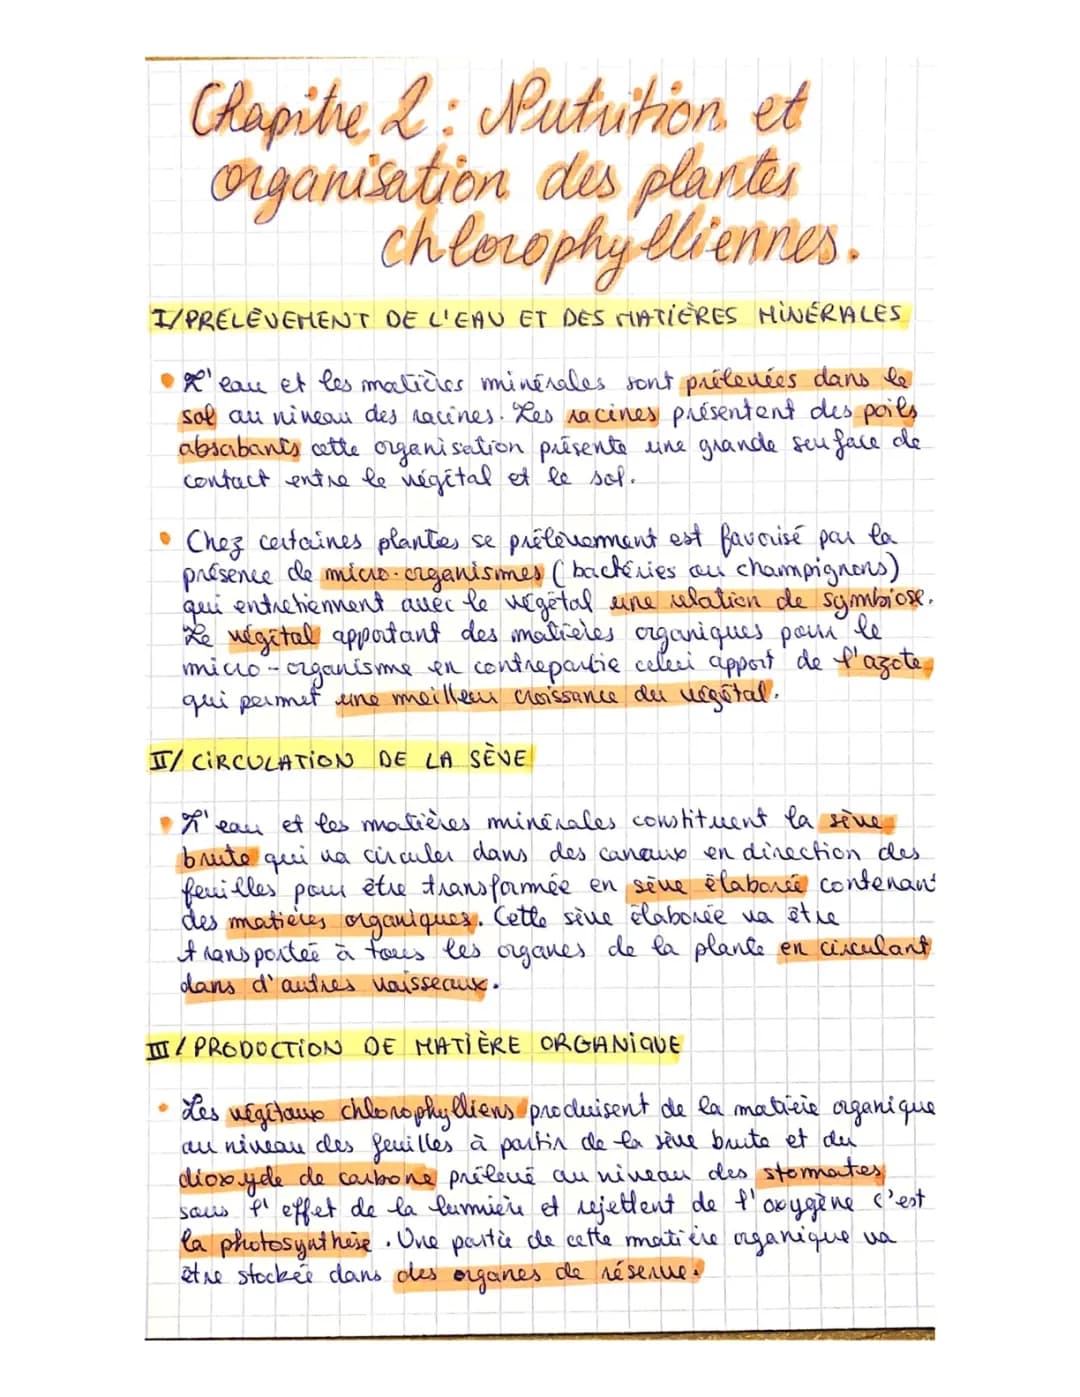 Chapitre 2 : Nutrition et
organisation des plantes
chlorophylliennes.
I/PRELÈVEMENT DE L'EAU ET DES MATIÈRES MINÉRALES
• L'eau et les matières minérales sont prélevées dans le
sol au niveau des racines. Les racines présentent des poils
absabants cette organisation présente une grande surface de
contact entre le végétal et le sol.
• Chez certaines plantes se prélèvement est favorisé par la
présence de micro-organismes (bactéries ou champignons)
qui entretiennent avec le végétal une relation de symbiose.
Le végétal apportant des matières organiques pour le
micro-organisme en contrepartie celui apport de l'azote
qui permet une meilleur croissance du végétal.
II/ CIRCULATION DE LA SÈVE
• L'eau et les matières minérales constituent la sève
brute qui va circuler dans des canaux en direction des
feuilles pour être transformée en sève élaborée contenant
des matières organiques. Cette sève élaborée va être
transportée à tous les organes de la plante en circulant
dans d'autres vaisseaux.
III/ PRODUCTION DE MATIÈRE ORGANIQUE
• Les végétaux chlorophylliens produisent de la matière organique
au niveau des feuilles à partir de la sève brute et du
dioxyde de carbone prélevé au niveau des stomates
sous l'effet de la lumière et rejettent de l'oxygène c'est
la photosynthèse. Une partie de cette matière organique va
être stockée dans des organes de réserve.